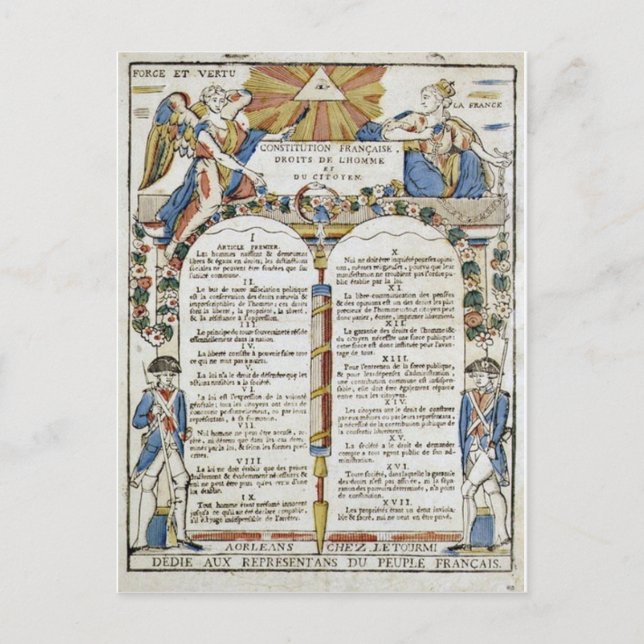 FORCE ET VERTU
LA FRANCE
CONSTITUTION FRANÇAISE.
DROITS DE L'HOMME
ET
DU CITOYEN.
I
ARTICLE PREMIER.
Les hommes naissent & demeurent
libres & égaux en droits; les distinctions
sociales ne peuvent être fondées que sur
l'utilité commune.
II.
Le but de toute association politique
est la conservation des droits naturels &
imprescriptibles de l'homme; ces droits
sont la liberté, la propriété, la sûreté,
& la résistance à l'oppression.
III.
Le principe de toute souveraineté réside
essentiellement dans la nation.
IV.
La liberté consiste à pouvoir faire tout
ce qui ne nuit pas à autrui.
V.
La loi n'a le droit de défendre que les
actions nuisibles à la société.
VI.
La loi est l'expression de la volonté
générale; tous les citoyens ont droit de
concourir personnellement, ou par leurs
représentans, à sa formation.
VII.
Nul homme ne peut être accusé, arrêté,
ni détenu que dans les cas déterminés
par la loi, & selon les formes
prescrites.
VIII.
La loi ne doit établir que des peines
strictement & évidemment nécessaires &
nul ne peut être puni qu'en vertu d'une
loi établie.
IX.
Tout homme étant présumé innocent
jusqu'à ce qu'il ait été déclaré coupable,
s'il est jugé indispensable de l'arrêter.
X.
Nul ne doit être inquiété pour ses opinions,
mêmes religieuses, pourvu que leur
manifestation ne trouble pas l'ordre
public établi par la loi.
XI.
La libre communication des pensées
& des opinions est un des droits les plus
précieux de l'homme; tout citoyen peut
donc parler, écrire, imprimer librement.
XII.
La garantie des droits de l'homme &
du citoyen nécessite une force publique;
cette force est donc instituée pour l'avantage
de tous.
XIII.
Pour l'entretien de la force publique,
& pour les dépenses d'administration,
une contribution commune est indispensable,
elle doit être également répartie
entre tous les citoyens.
XIV.
Les citoyens ont le droit de constater
par eux mêmes ou par leurs représentans,
la nécessité de la contribution publique &
la consentir librement.
XV.
La société a le droit de demander
compte à tout agent public de son administration.
XVI.
Toute société, dans laquelle la garantie
des droits n'est pas assurée, ni la séparation
des pouvoirs déterminée, n'a point
de constitution.
XVII.
Les propriétés étant un droit inviolable
& sacré, nul ne peut en être privé.
A ORLEANS CHEZ LETOURMI
DÉDIÉ AUX REPRÉSENTANS DU PEUPLE FRANÇAIS.